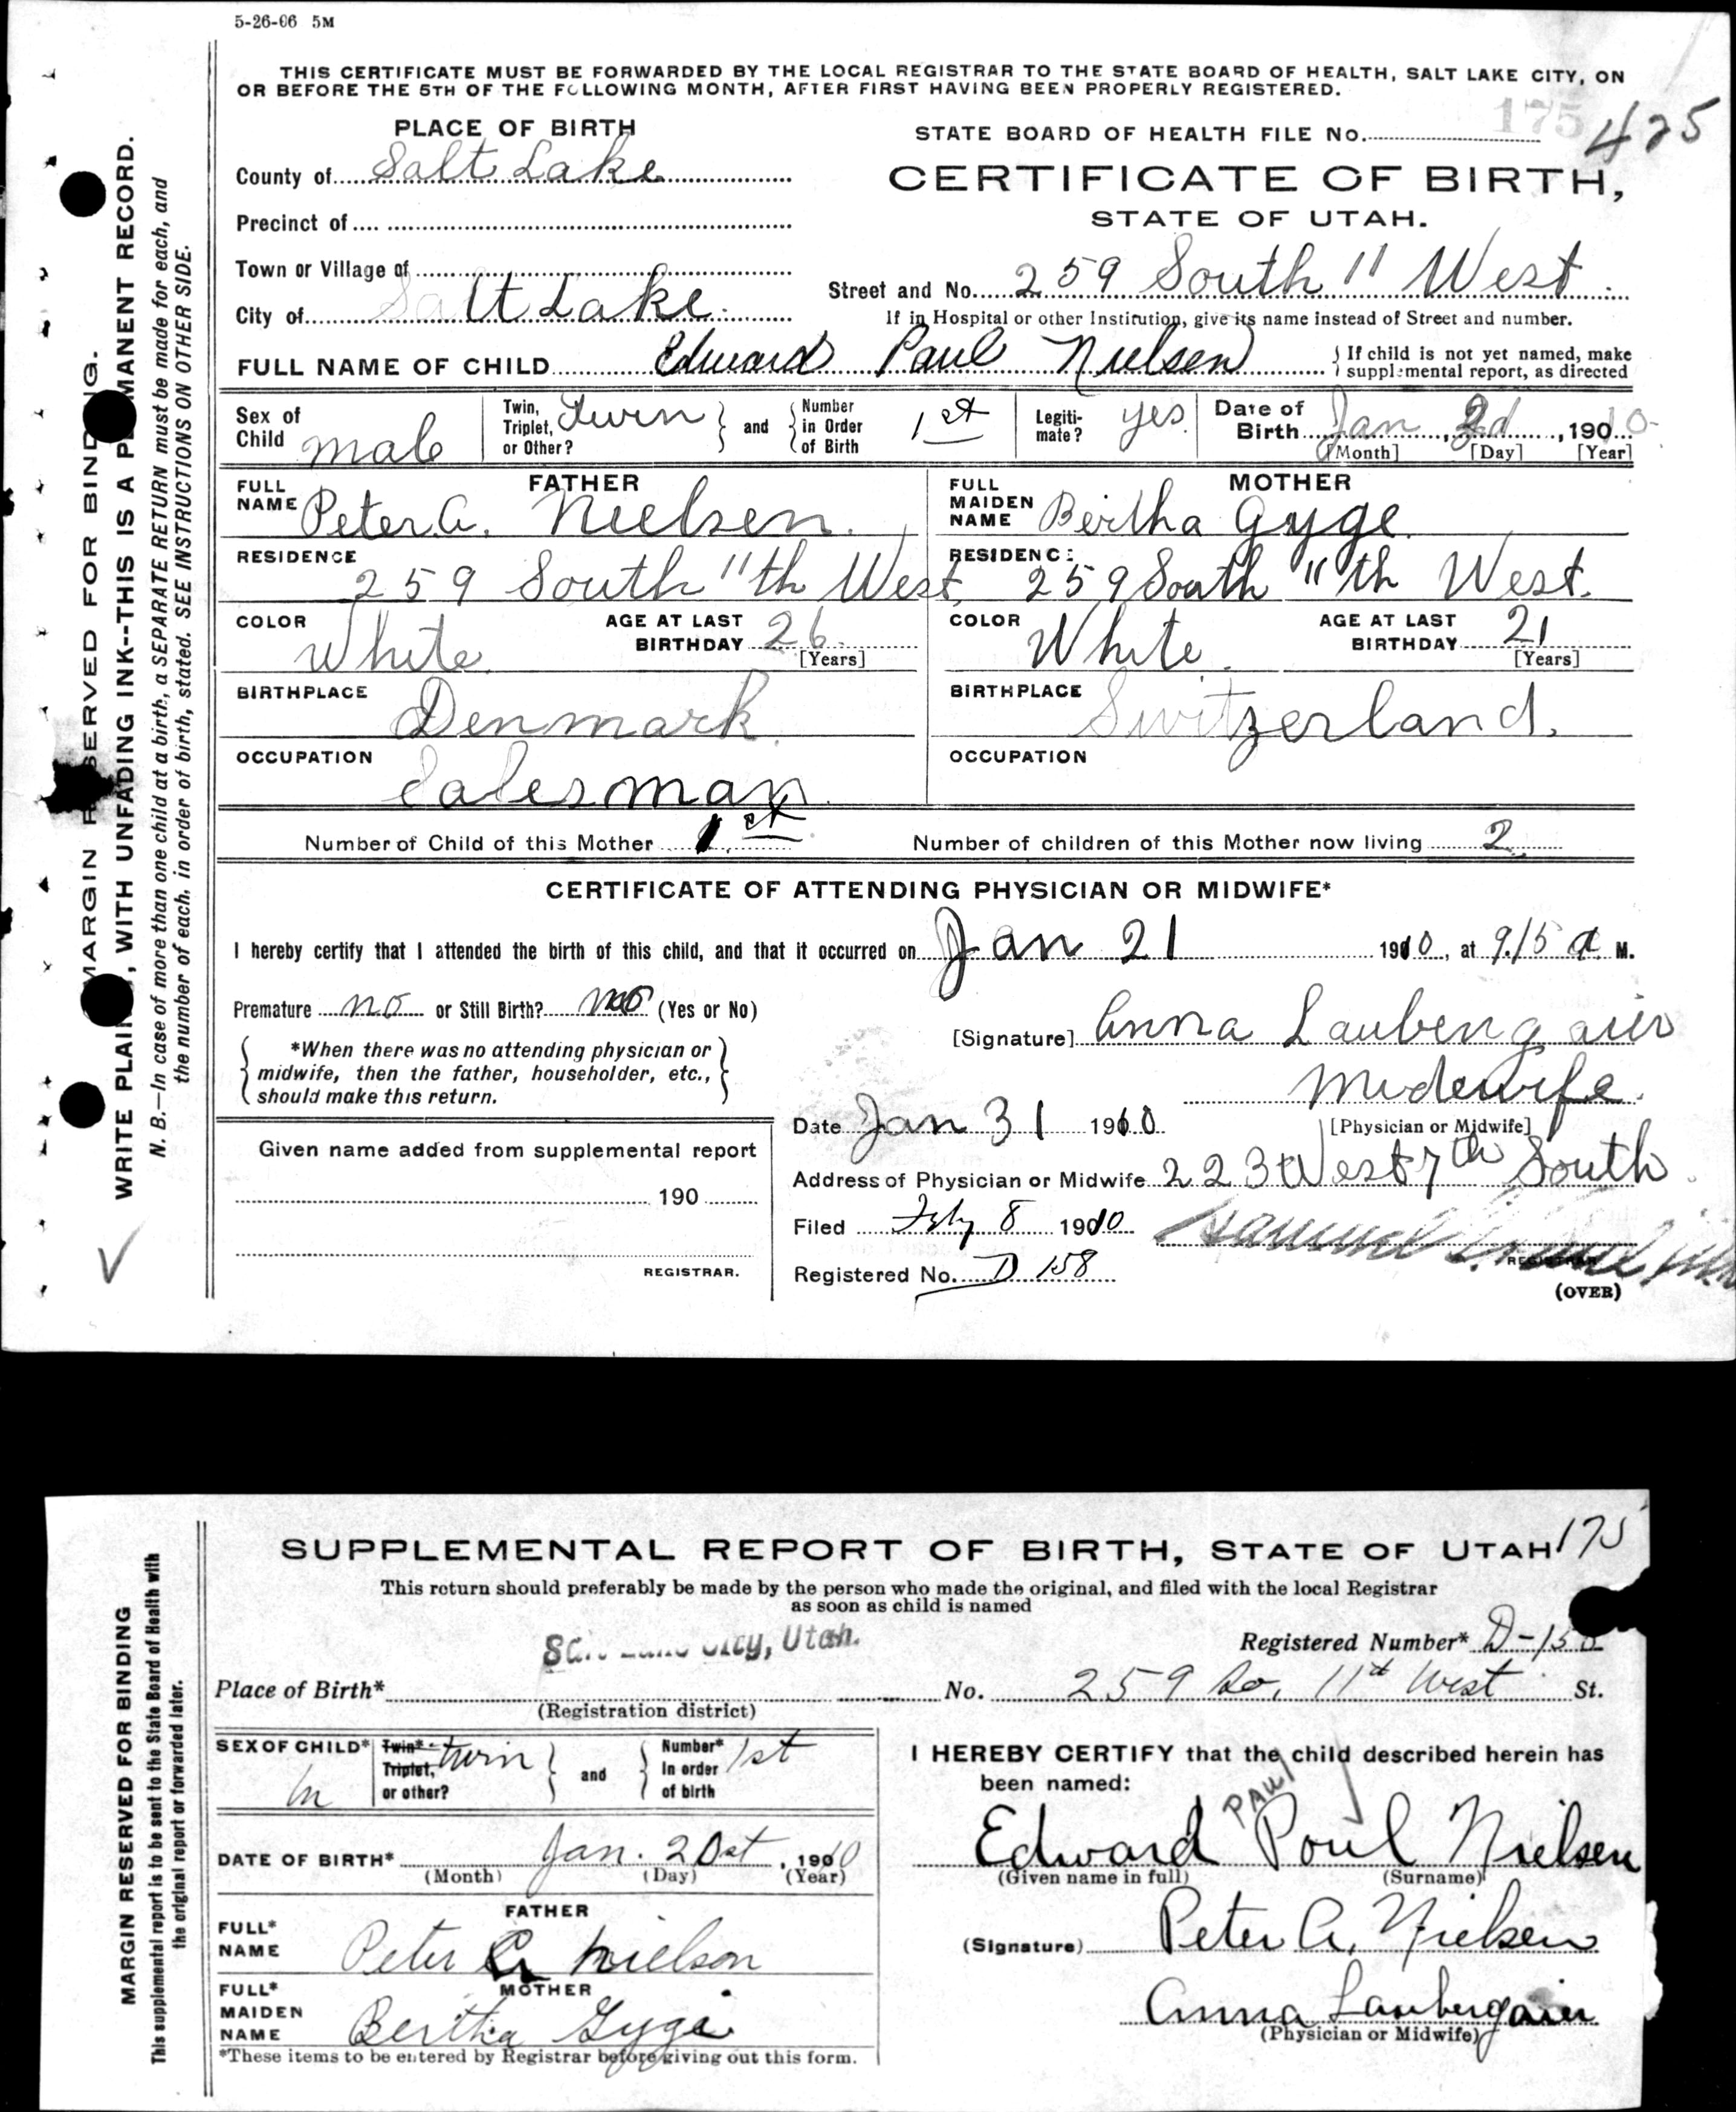 5-26-06 5M
THIS CERTIFICATE MUST BE FORWARDED BY THE LOCAL REGISTRAR TO THE STATE BOARD OF HEALTH, SALT LAKE CITY, ON
OR BEFORE THE 5TH OF THE FOLLOWING MONTH, AFTER FIRST HAVING BEEN PROPERLY REGISTERED.
PLACE OF BIRTH
STATE BOARD OF HEALTH FILE No. 175 425
County of Salt Lake
CERTIFICATE OF BIRTH,
Precinct of
STATE OF UTAH.
Town or Village of
Street and No. 259 South 11 West
City of Salt Lake
If in Hospital or other Institution, give its name instead of Street and number.
FULL NAME OF CHILD Edward Paul Nielsen
If child is not yet named, make
supplemental report, as directed
Sex of Child male
Twin, Triplet, or Other? Twin and Number in Order of Birth 1st
Legitimate? yes
Date of Birth Jan , 190
[Month] [Day] [Year]
FATHER
FULL NAME Peter A. Nielsen.
MOTHER
FULL MAIDEN NAME Bertha Gyge
RESIDENCE 259 South 11th West
RESIDENCE 259 South 11th West.
COLOR White AGE AT LAST BIRTHDAY 26 [Years]
COLOR White AGE AT LAST BIRTHDAY 21 [Years]
BIRTHPLACE Denmark
BIRTHPLACE Switzerland.
OCCUPATION Salesman
OCCUPATION
Number of Child of this Mother 1st
Number of children of this Mother now living 2
CERTIFICATE OF ATTENDING PHYSICIAN OR MIDWIFE*
I hereby certify that I attended the birth of this child, and that it occurred on Jan 21 1910, at 9.15 a M.
Premature no or Still Birth? no (Yes or No)
[Signature] Anna Laubengaier
Midewife.
[Physician or Midwife]
*When there was no attending physician or
midwife, then the father, householder, etc.,
should make this return.
Date Jan 31 1910
Address of Physician or Midwife 223 West 7th South
Given name added from supplemental report
190
REGISTRAR.
Filed Feby 8 1910
Registered No. D 158
REGISTRAR
(OVER)
MARGIN RESERVED FOR BINDING.
WRITE PLAINLY, WITH UNFADING INK--THIS IS A PERMANENT RECORD.
N. B.—In case of more than one child at a birth, a SEPARATE RETURN must be made for each, and
the number of each, in order of birth, stated. SEE INSTRUCTIONS ON OTHER SIDE.
SUPPLEMENTAL REPORT OF BIRTH, STATE OF UTAH 175
This return should preferably be made by the person who made the original, and filed with the local Registrar
as soon as child is named
Salt Lake City, Utah.
Registered Number* D-158
Place of Birth* No. 259 So. 11th West St.
(Registration district)
SEX OF CHILD* M
Twin* Triplet, or other? twin and Number* In order of birth 1st
I HEREBY CERTIFY that the child described herein has
been named:
PAUL
Edward Poul Nielsen
(Given name in full) (Surname)
DATE OF BIRTH* Jan. , 1900
(Month) (Day) (Year)
FATHER
FULL* NAME Peter A Nielson
(Signature) Peter A. Nielsen
MOTHER
FULL* MAIDEN NAME Bertha Gygi
Anna Laubengaier
(Physician or Midwife)
*These items to be entered by Registrar before giving out this form.
MARGIN RESERVED FOR BINDING
This supplemental report is to be sent to the State Board of Health with
the original report or forwarded later.